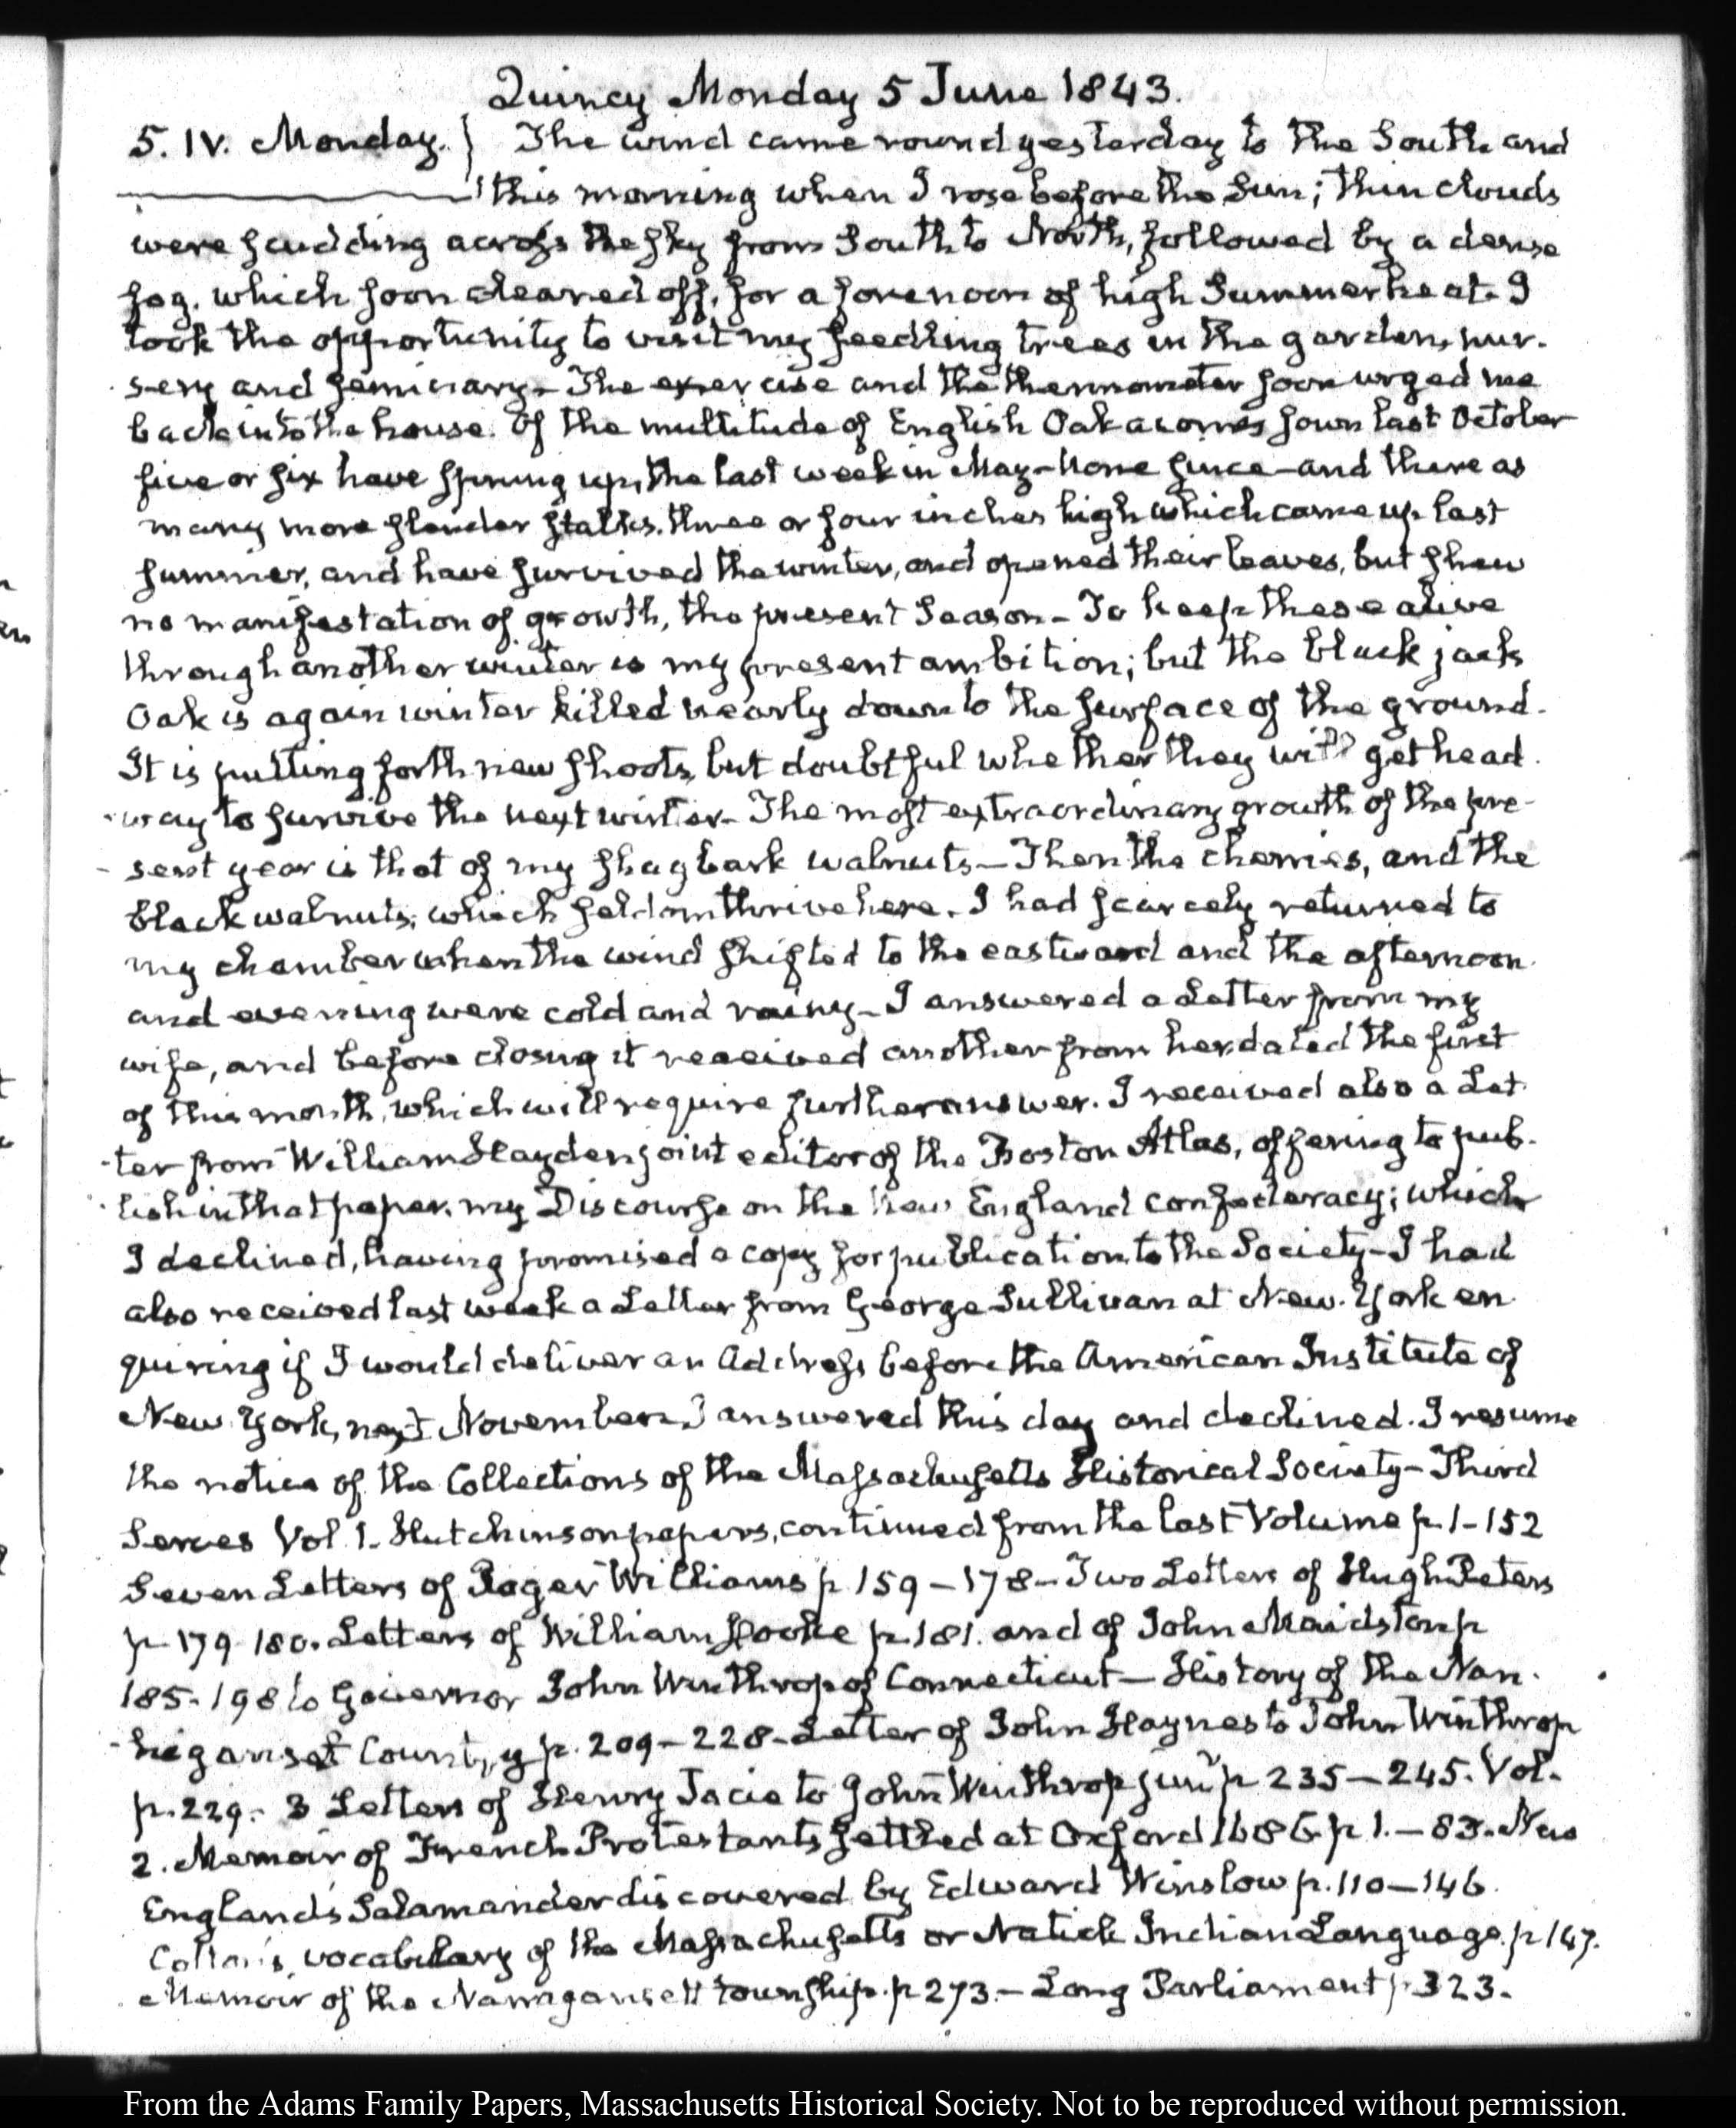 Quincy Monday 5 June 1843.
5. IV. Monday. } The wind came round yesterday to the South and
this morning when I rose before the Sun; thin clouds
were scudding across the sky from South to North, followed by a dense
fog, which soon cleared off, for a forenoon of high Summer heat. I
took the opportunity to visit my seedling trees in the garden, nur-
-sery and seminary- The exercise and the thermometer soon urged me
back into the house. Of the multitude of English Oak acorns sown last October
five or six have sprung up, the last week in May- None since- and there as
many more slender stalks. three or four inches high which came up last
summer, and have survived the winter, and opened their leaves, but shew
no manifestation of growth, the present Season- To keep these alive
through another winter is my present ambition; but the black jack
Oak is again winter killed nearly down to the surface of the ground.
It is putting forth new shoots, but doubtful whether they will get head
-way to survive the next winter- The most extraordinary growth of the pre-
-sent year is that of my shagbark walnuts- Then the cherries, and the
black walnuts, which seldom thrive here. I had scarcely returned to
my chamber when the wind shifted to the eastward and the afternoon
and evening were cold and rainy- I answered a Letter from my
wife, and before closing it received another from her, dated the first
of this month, which will require further answer. I received also a Let-
-ter from William Hayden joint editor of the Boston Atlas, offering to pub-
-lish in that paper, my Discourse on the New England confederacy; which
I declined, having promised a copy for publication, to the Society- I had
also received last week a Letter from George Sullivan at New-York en
quiring if I would deliver an Address before the American Institute of
New York, next November. I answered this day and declined. I resume
the notice of the Collections of the Massachusetts Historical Society- Third
Series Vol 1. Hutchinson papers, continued from the last Volume p. 1-152
Seven Letters of Roger Williams p 159-178- Two Letters of Hugh Peters
p. 179-180. Letters of William Hooke p. 181. and of John Maidston p
185-198 to Governor John Winthrop of Connecticut- History of the Nar-
-higanset Country p. 209-228- Letter of John Haynes to John Winthrop
p. 229. 3 Letters of Henry Jacie to John Winthrop junr p 235-245. Vol.
2. Memoir of French Protestants settled at Oxford 1686. p 1.-83. New
England's Salamander discovered by Edward Winslow p. 110-146.
Cotton's vocabulary of the Massachusetts or Natick Indian Language. p 147.
Memoir of the Narragansett township. p 273.- Long Parliament p. 323.
From the Adams Family Papers, Massachusetts Historical Society. Not to be reproduced without permission.